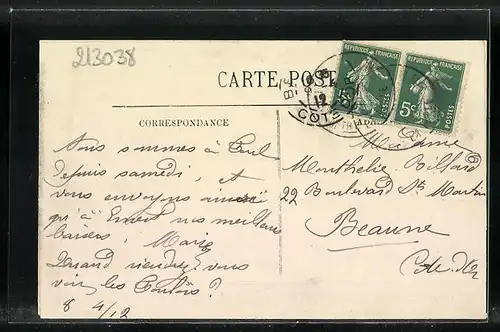 213038
CARTE POST
CORRESPONDANCE
REPUBLIQUE FRANÇAISE
5c
POSTES
REPUBLIQUE FRANÇAISE
5c
POSTES
12
COTE
Nous sommes à
depuis samedi, et
vous envoyons ainsi
qu'à Ernest nos meilleurs
baisers, Marie
Quand viendrez vous
voir les ?
8 4/12
Madame
Monthelie Billard
22 Boulevard St Martin
Beaune
Côte d'Or